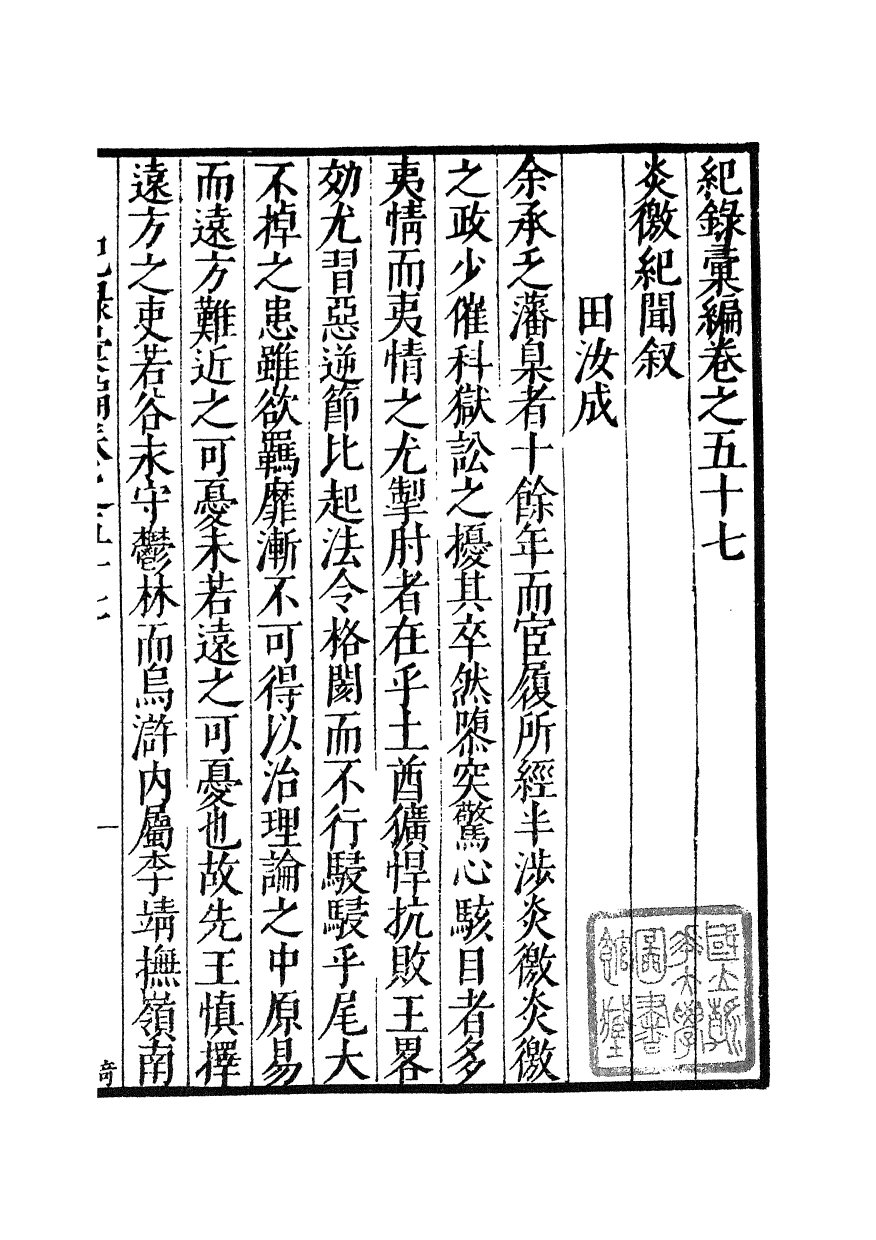 紀錄彚編卷之五十七
炎徼紀聞叙
田汝成
余承乏藩臬者十餘年而宦履所經半涉炎徼炎徼
之政少催科獄訟之擾其卒然隳突驚心駭目者多
夷情而夷情之尤掣肘者在乎土酋獷悍抗敗王畧
効尤習惡逆節比起法令格閡而不行駸駸乎尾大
不掉之患雖欲羈靡漸不可得以治理論之中原易
而遠方難近之可憂未若遠之可憂也故先王慎擇
遠方之吏若谷永守鬱林而烏滸内屬李靖撫嶺南
一